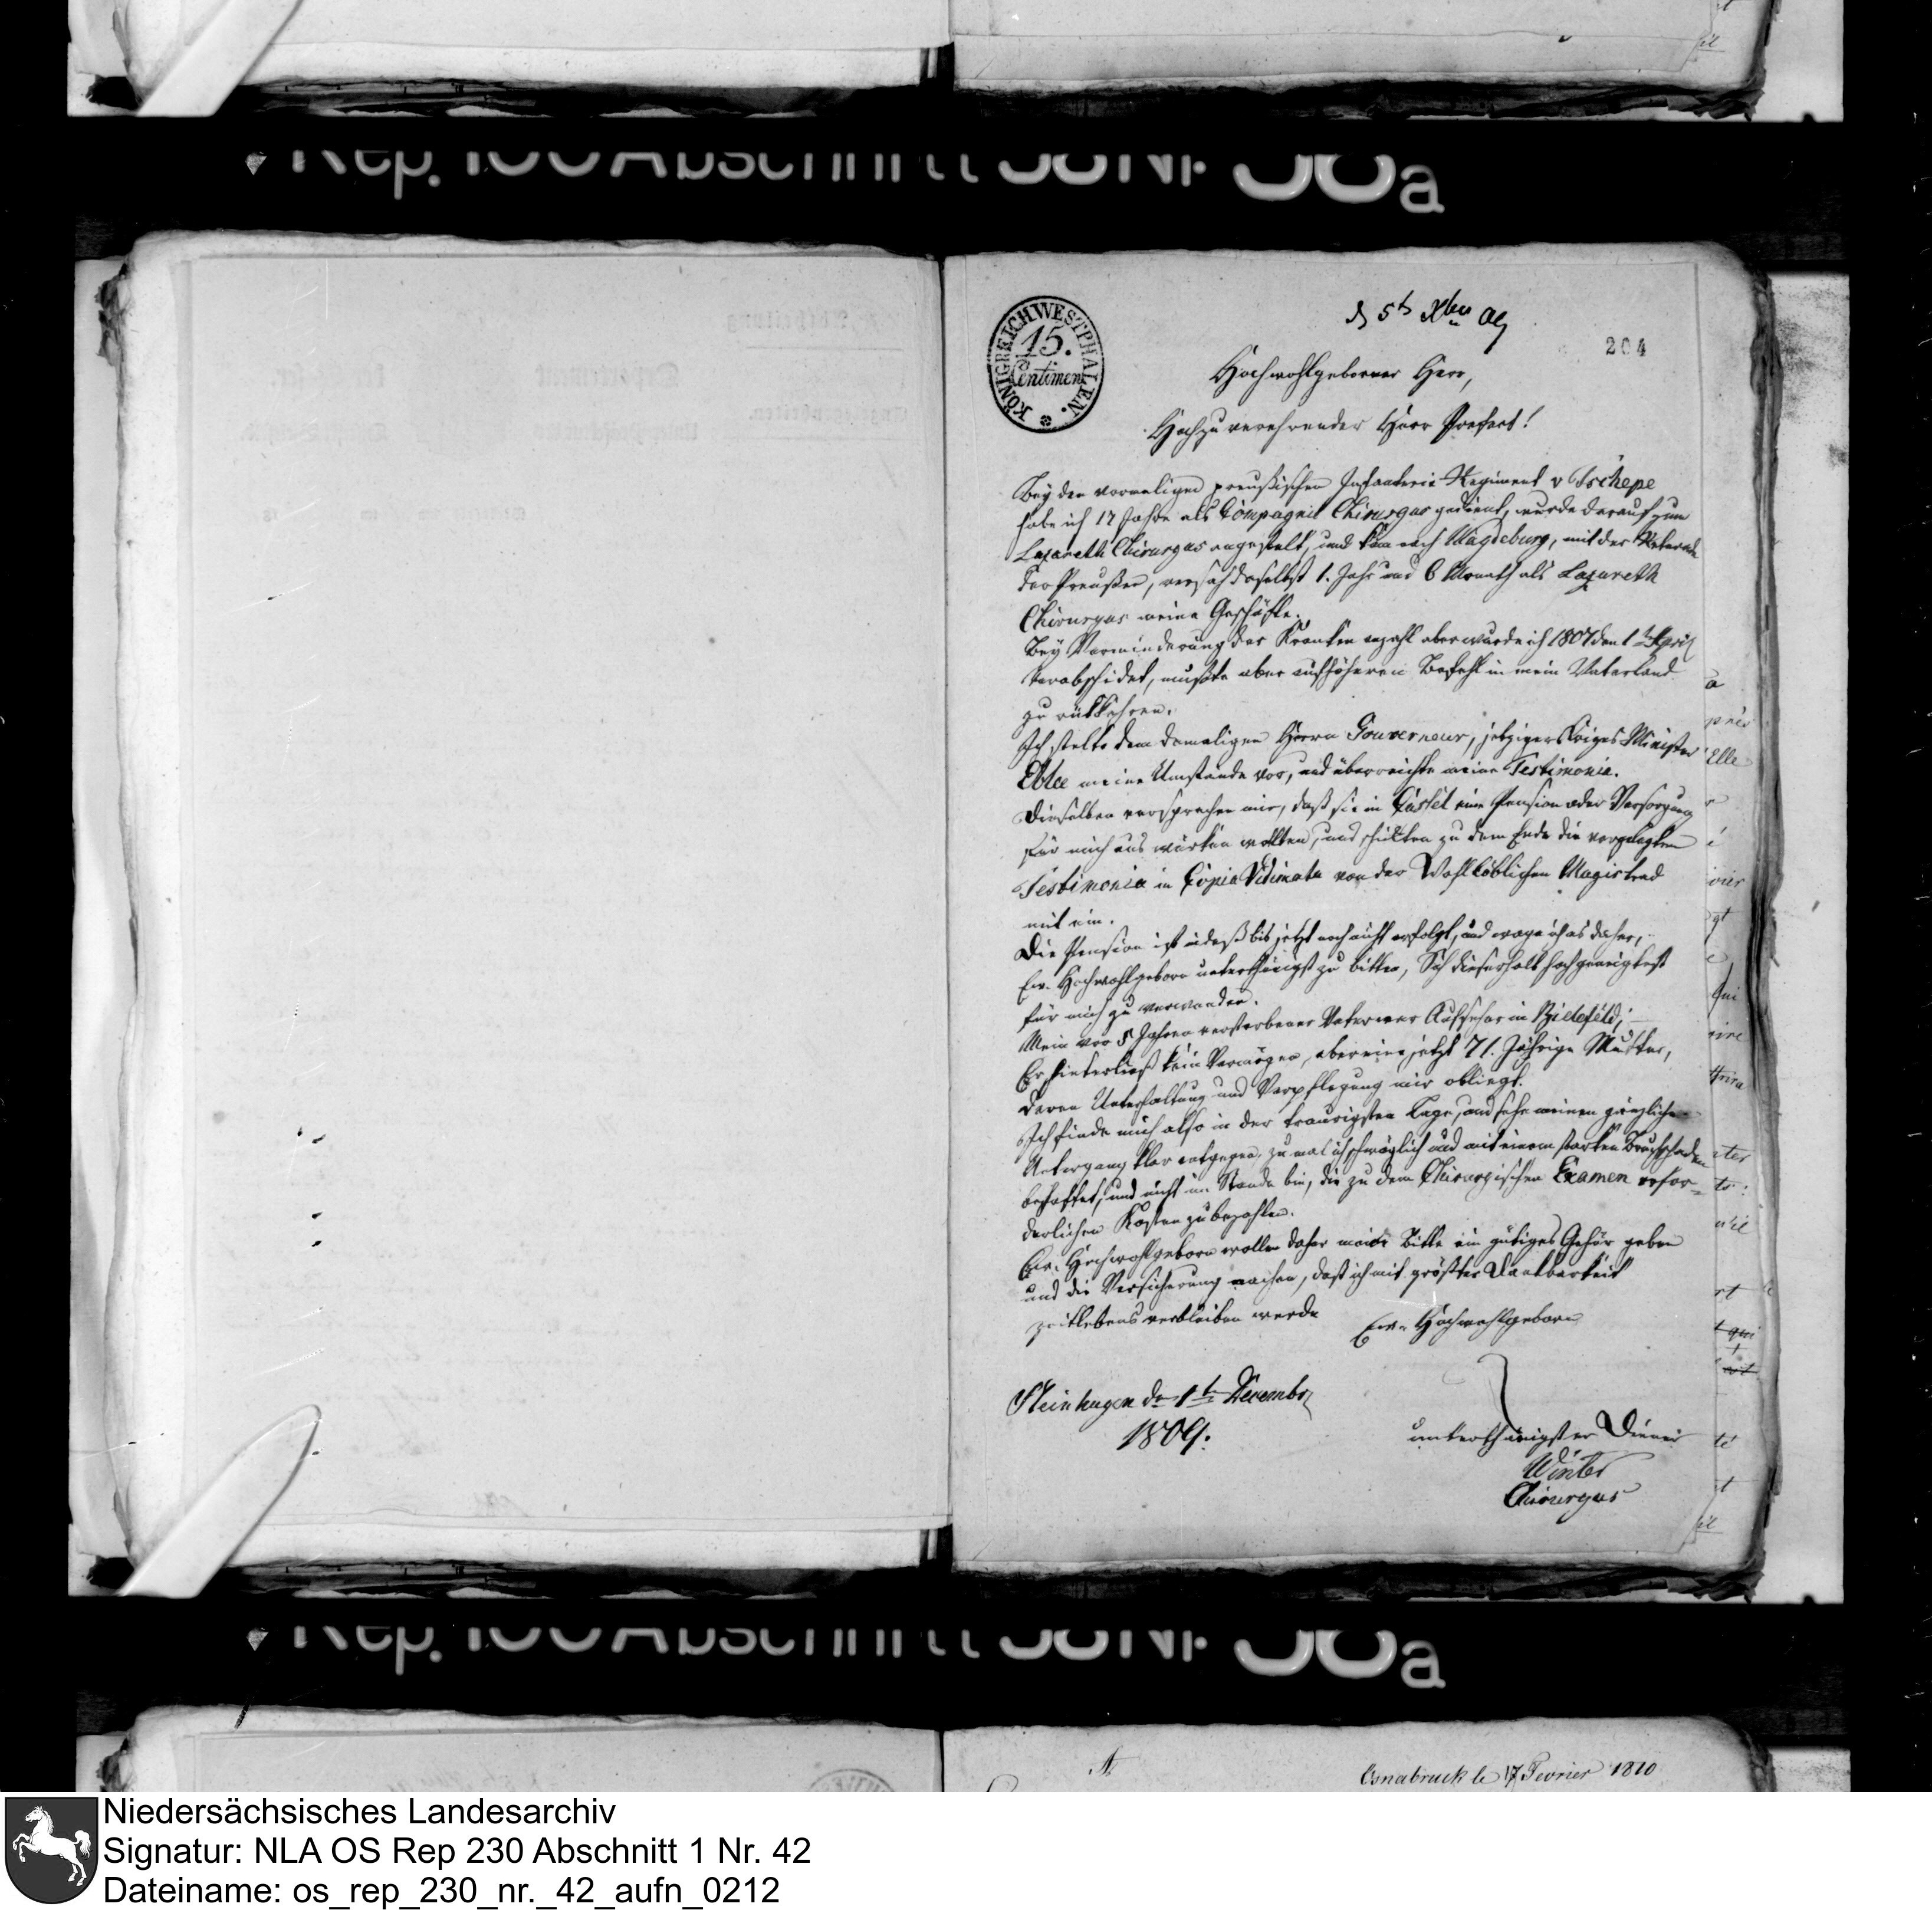 Rep. 100 Abschnitt 38 Nr 38a
KÖNIGREICH WESTPHALEN.
15.
Centimen
d 5t Xber 09
204
Hochwohlgeborner Herr,
Hochzuverehrender Herr Prefect!
Bey den vormaligen preußischen Infanterie Regiment v Tschepe
habe ich 17 Jahre als Compagnie Chirurgus gedient, wurde darauf zum
Lazareth Chirurgus angestelt, und kam nach Magdeburg, mit der Reterade
der Preußen, versah daselbst 1. Jahr und 6 Monath als Lazareth
Chirurgus meine Geschäfte.
Bey Verminderung der Kranken anzahl aber wurde ich 1807 den 1t April
verabschidet, mußte aber auf höheren Befehl in mein Vaterland
zurükkehren.
Ich stelte dem damaligen Herrn Gouverneur, jetziger Kriges Minister
Eblee meine Umstände vor, und überreichte meine Testimonia.
Dieselben versprachen mir, daß sie in Cassel eine Pension oder Versorgung
für mich aus würken wollten, und schikten zu dem Ende die vorgelegten
Testimonia in Copia Vidimata von der Wohllöblichen Magistrad
mit ein.
Die Pension ist indeß bis jetzt noch nicht erfolgt, und wage ich es daher,
Ew. Hochwohlgeborn unterthänigst zu bitten, Sich dieserhalb hochgeneigtest
für mich zu verwenden.
Mein vor 5 Jahren verstorbener Vater war Aufseher in Bielefeld;
Er hinterließ kein Vermögen, aber eine jetzt 71. Jährige Mutter,
deren Unterhaltung und Verpflegung mir obliegt.
Ich finde mich also in der traurigsten Lage, und sehe meinen gänzlichen
Untergang klar entgegen, zu mal ich schwäglich und mit einem starken Bruchschaden
behaftet, und nicht im Stande bin, die zu dem Chirurgischen Examen erfor-
derlichen Kosten zu bezahlen.
Ew. Hochwohlgeborn wollen daher meine Bitte ein gütiges Gehör geben
und die Versicherung machen, daß ich mit größter Dankbarkeit
zeitlebens verbleiben werde
Ew. Hochwohlgeborn
Steinhagen den 1t Decembr
1809.
unterthänigster Diener
Winter
Chirurgus
Rep. 100 Abschnitt 38 Nr 38a
Osnabruck le 17 Fevrier 1810
Niedersächsisches Landesarchiv
Signatur: NLA OS Rep 230 Abschnitt 1 Nr. 42
Dateiname: os_rep_230_nr._42_aufn_0212